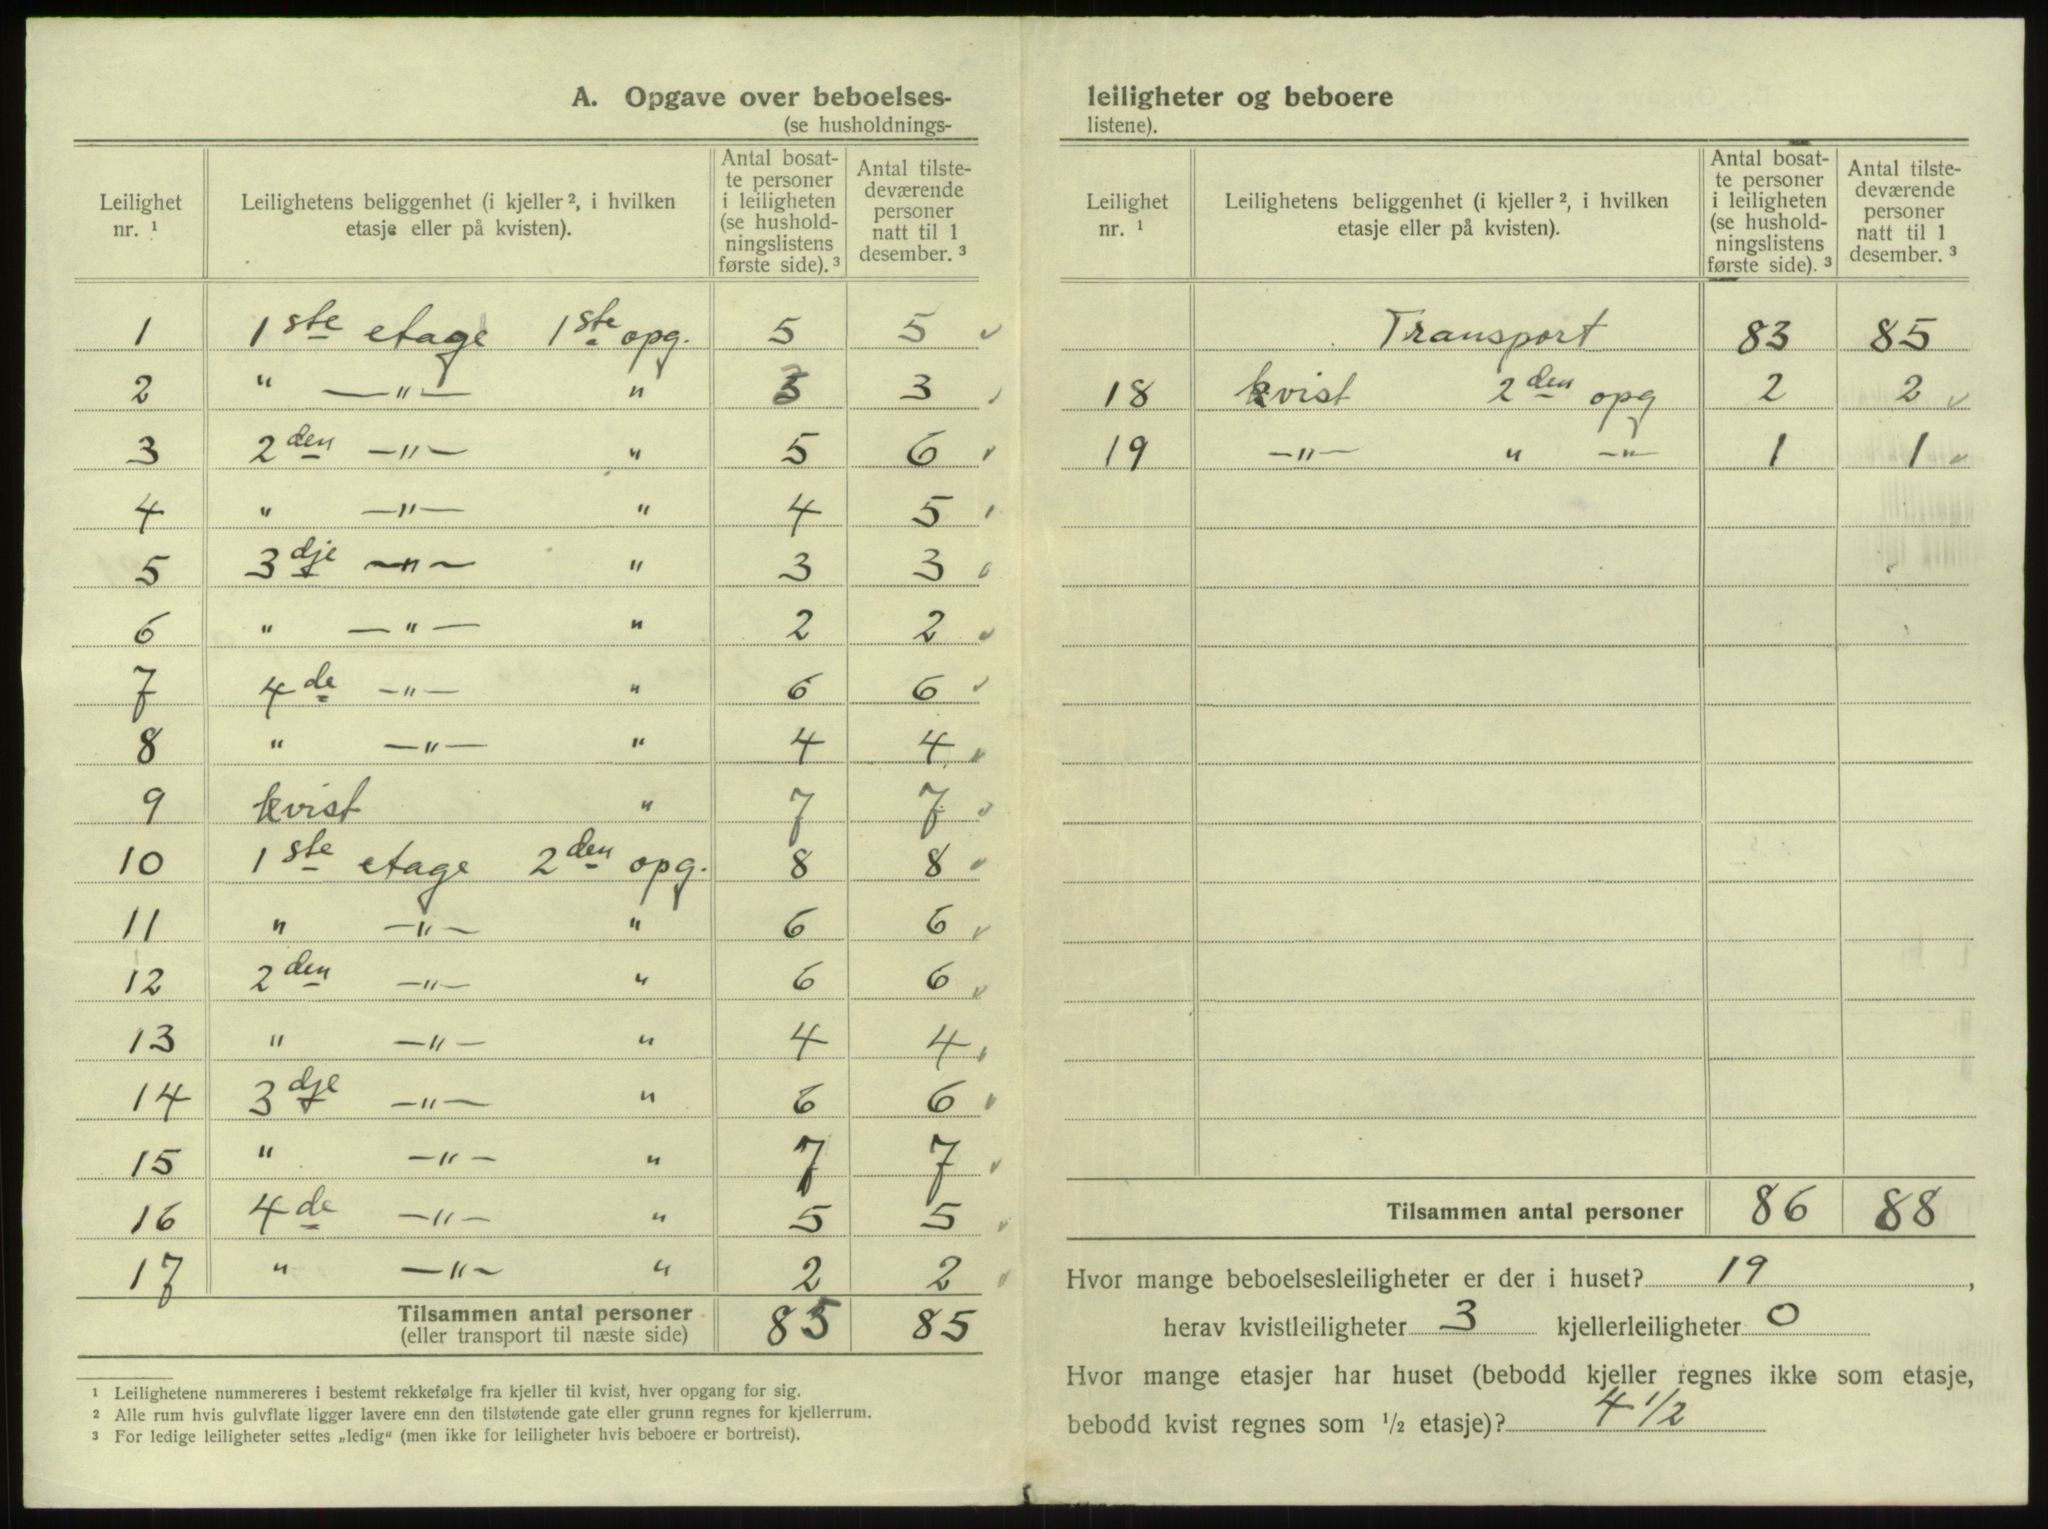 A. Opgave over beboelses-
(se husholdnings-
Leilighet nr. ¹ | Leilighetens beliggenhet (i kjeller ², i hvilken etasje eller på kvisten). | Antal bosatte personer i leiligheten (se husholdningslistens første side). ³ | Antal tilstedeværende personer natt til 1 desember. ³
1 1ste etage 1ste opg. 5 5 ✓
2 " —"— " 3 3 ✓
3 2den —"— " 5 6 ✓
4 " —"— " 4 5 ✓
5 3dje —"— " 3 3 ✓
6 " —"— " 2 2 ✓
7 4de —"— " 6 6 ✓
8 " —"— " 4 4 ✓
9 kvist " 7 7 ✓
10 1ste etage 2den opg. 8 8 ✓
11 " —"— " 6 6 ✓
12 2den —"— " 6 6 ✓
13 " —"— " 4 4 ✓
14 3dje —"— " 6 6 ✓
15 " —"— " 7 7 ✓
16 4de —"— " 5 5 ✓
17 " —"— " 2 2 ✓
Tilsammen antal personer 83 85
(eller transport til næste side)
¹ Leilighetene nummereres i bestemt rekkefølge fra kjeller til kvist, hver opgang for sig.
² Alle rum hvis gulvflate ligger lavere enn den tilstøtende gate eller grunn regnes for kjellerrum.
³ For ledige leiligheter settes „ledig“ (men ikke for leiligheter hvis beboere er bortreist).
leiligheter og beboere
listene).
Leilighet nr. ¹ | Leilighetens beliggenhet (i kjeller ², i hvilken etasje eller på kvisten). | Antal bosatte personer i leiligheten (se husholdningslistens første side). ³ | Antal tilstedeværende personer natt til 1 desember. ³
Transport 83 85
18 kvist 2den opg 2 2 ✓
19 —"— " —"— 1 1 ✓
Tilsammen antal personer 86 88
Hvor mange beboelsesleiligheter er der i huset? 19,
herav kvistleiligheter 3 kjellerleiligheter 0
Hvor mange etasjer har huset (bebodd kjeller regnes ikke som etasje,
bebodd kvist regnes som ½ etasje)? 4 ½